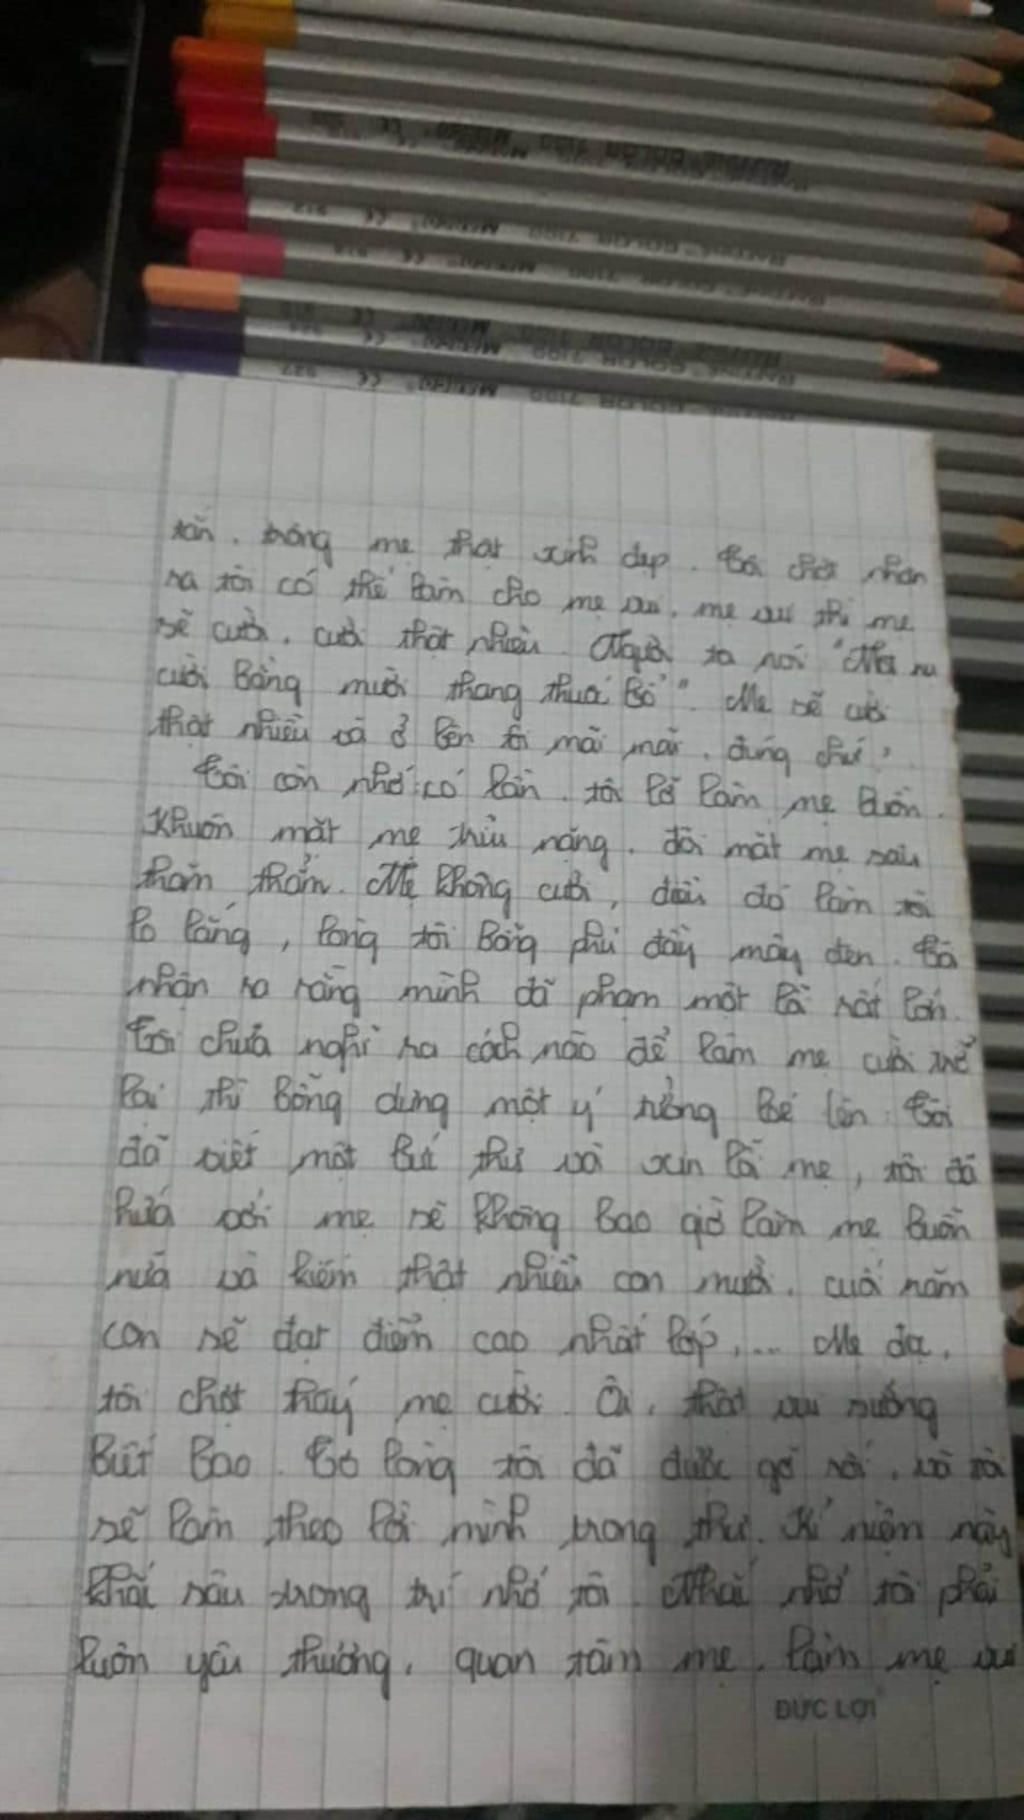 tôi nhìn
trông mẹ thật xinh đẹp. Tôi chợt nhận
ra tôi có thể làm cho mẹ vui, mẹ vui thì mẹ
sẽ cười, cười thật nhiều. Người ta nói "Một nụ
cười bằng mười thang thuốc bổ". Mẹ sẽ cười
thật nhiều và ở bên tôi mãi mãi, đúng chứ?
Tôi còn nhớ: có lần, tôi lỡ làm mẹ buồn.
Khuôn mặt mẹ trĩu nặng, đôi mắt mẹ sâu
thăm thẳm. Mẹ không cười, điều đó làm tôi
lo lắng, lòng tôi bỗng phủ đầy mây đen. Tôi
nhận ra rằng mình đã phạm một lỗi rất lớn.
Tôi chưa nghĩ ra cách nào để làm mẹ cười trở
lại thì bỗng dưng một ý tưởng lóe lên: Tôi
đã viết một bức thư và xin lỗi mẹ, tôi đã
hứa với mẹ sẽ không bao giờ làm mẹ buồn
nữa và kiếm thật nhiều con mười, cuối năm
con sẽ đạt điểm cao nhất lớp,... Mẹ đọc,
tôi chợt thấy mẹ cười. Ôi, thật vui sướng
biết bao. Tơ lòng tôi đã được gỡ rối, và tôi
sẽ làm theo lời mình trong thư. Kỉ niệm này
khắc sâu trong trí nhớ tôi. Nhắc nhở tôi phải
luôn yêu thương, quan tâm mẹ, làm mẹ vui
ĐỨC LỢI